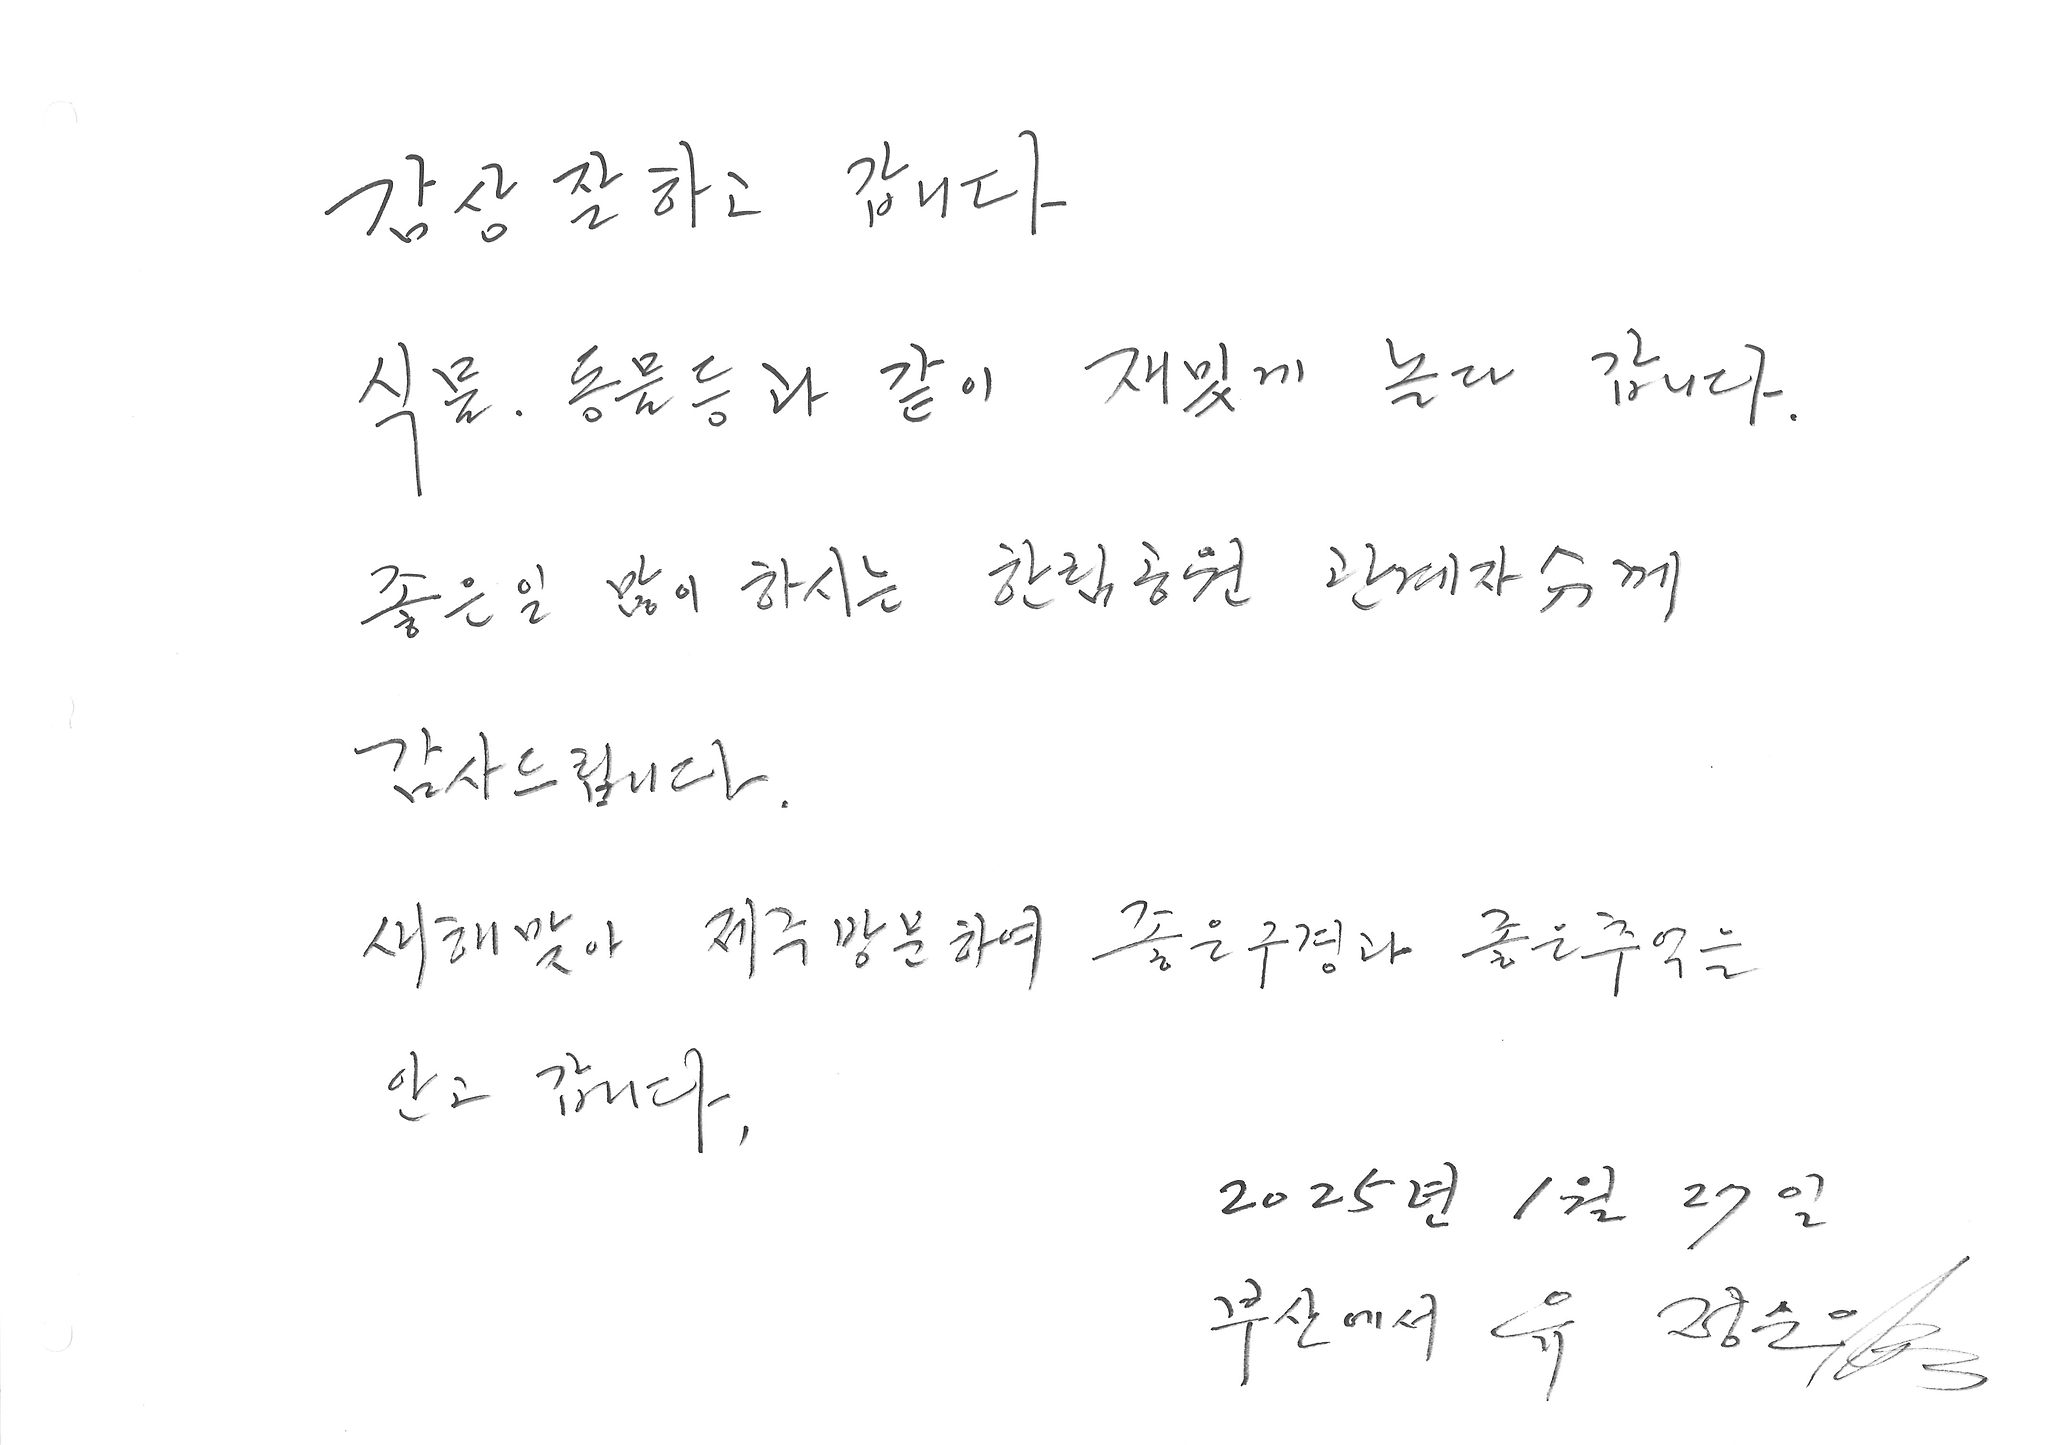 감상 잘하고 갑니다
식물. 동물등과 같이 재밌게 놀다 갑니다.
좋은일 많이 하시는 한림공원 관계자 께
감사드립니다.
새해맞아 제주방문하여 좋은구경과 좋은추억은
안고 갑니다,
2025년 1월 27일
부산에서 유